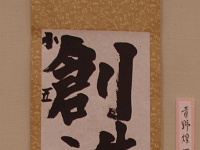 創造
小五
青野煌